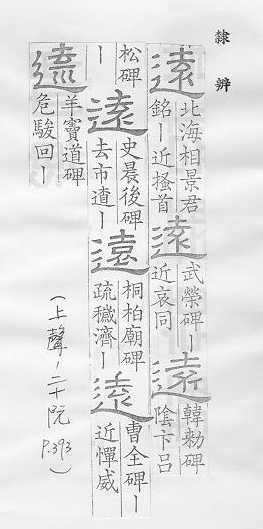 隸辨
遠 北海相景君
銘ー近搔首
遠 武榮碑ー
近哀同
遠 韓勑碑
陰卞呂
松碑
ー
遠 史晨後碑
去市遼ー
遠 桐柏廟碑
疏穢濟ー
遠 曹全碑ー
近憚威
遠 羊竇道碑
危駿回ー
(上聲-二十阮 P.393)